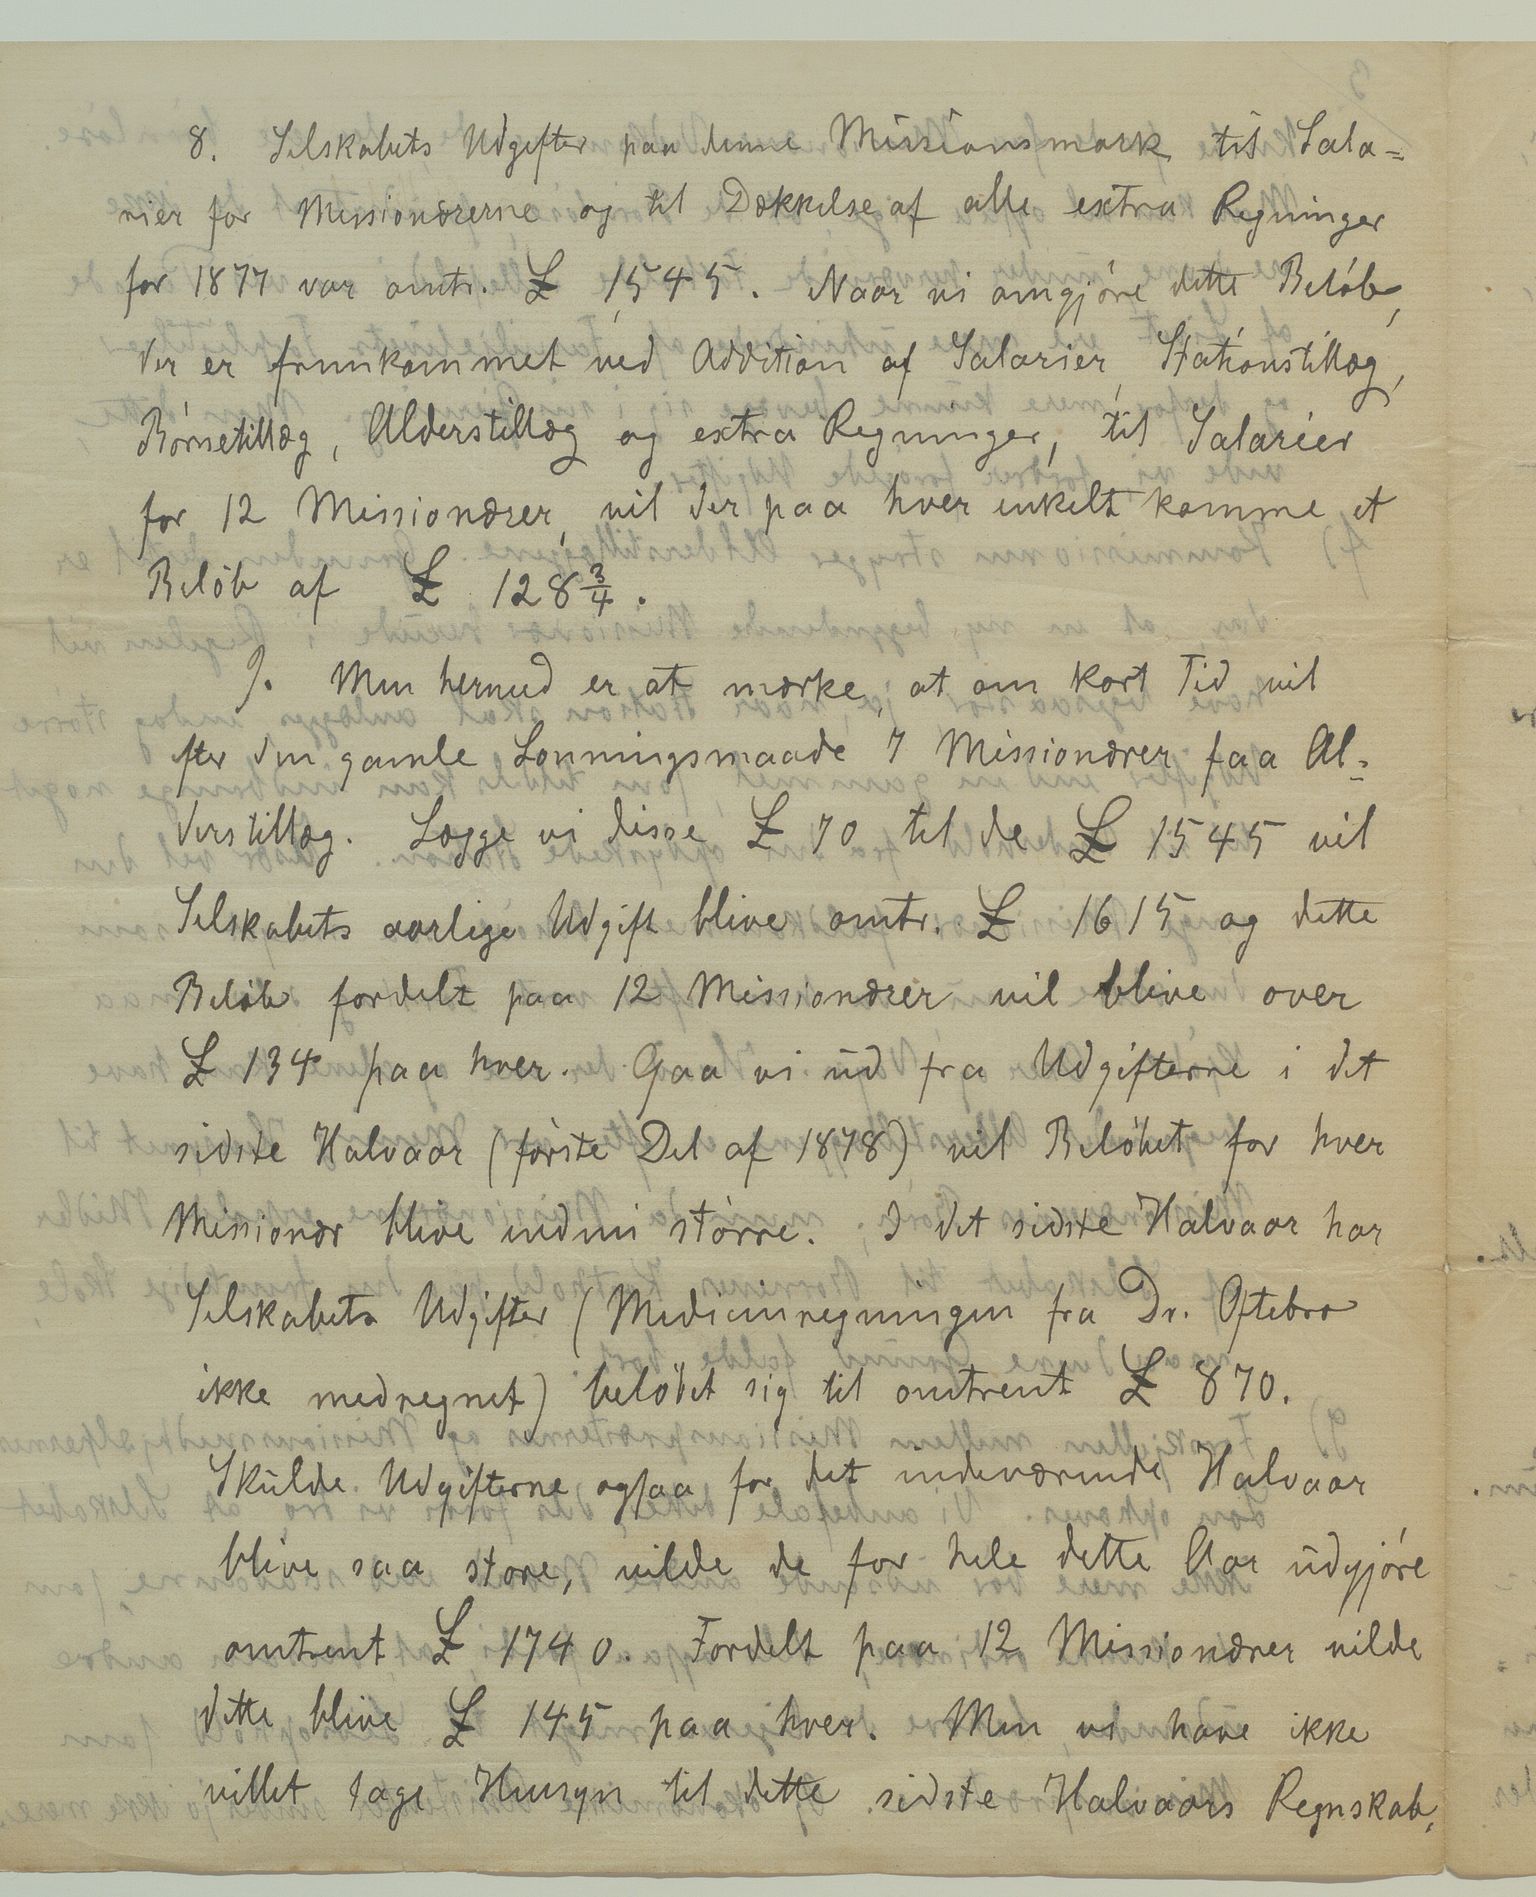 8. Selskabets Udgifter paa denne Missionsmark til Sala=
rier for Missionærerne og til Dækkelse af alle extra Regninger
for 1877 var omtr. £ 1545. Naar vi omgjøre dette Beløb,
der er fremkommet ved Addition af Salarier, Stationstillæg,
Børnetillæg, Alderstillæg og extra Regninger, til Salarier
for 12 Missionærer, vil der paa hver enkelt komme et
Beløb af £ 128 3/4.
9. Men herved er at mærke, at om kort Tid vil
efter den gamle Lønningsmaade 7 Missionærer faa Al=
derstillæg. Lægge vi disse £ 70 til de £ 1545 vil
Selskabets aarlige Udgift blive omtr. £ 1615 og dette
Beløb fordelt paa 12 Missionærer vil blive over
£ 134 paa hver. Gaa vi ud fra Udgifterne i det
sidste Halvaar (første Del af 1878) vil Beløbet for hver
Missionær blive endnu større. I det sidste Halvaar har
Selskabets Udgifter (Medicinregningen fra Dr. Oftebro
ikke medregnet) beløbet sig til omtrent £ 870.
Skulde Udgifterne ogsaa for det indeværende Halvaar
blive saa store, vilde de for hele dette Aar udgjøre
omtrent £ 1740. Fordelt paa 12 Missionærer vilde
dette blive £ 145 paa hver. Men vi have ikke
villet tage Hensyn til dette sidste Halvaars Regnskab,